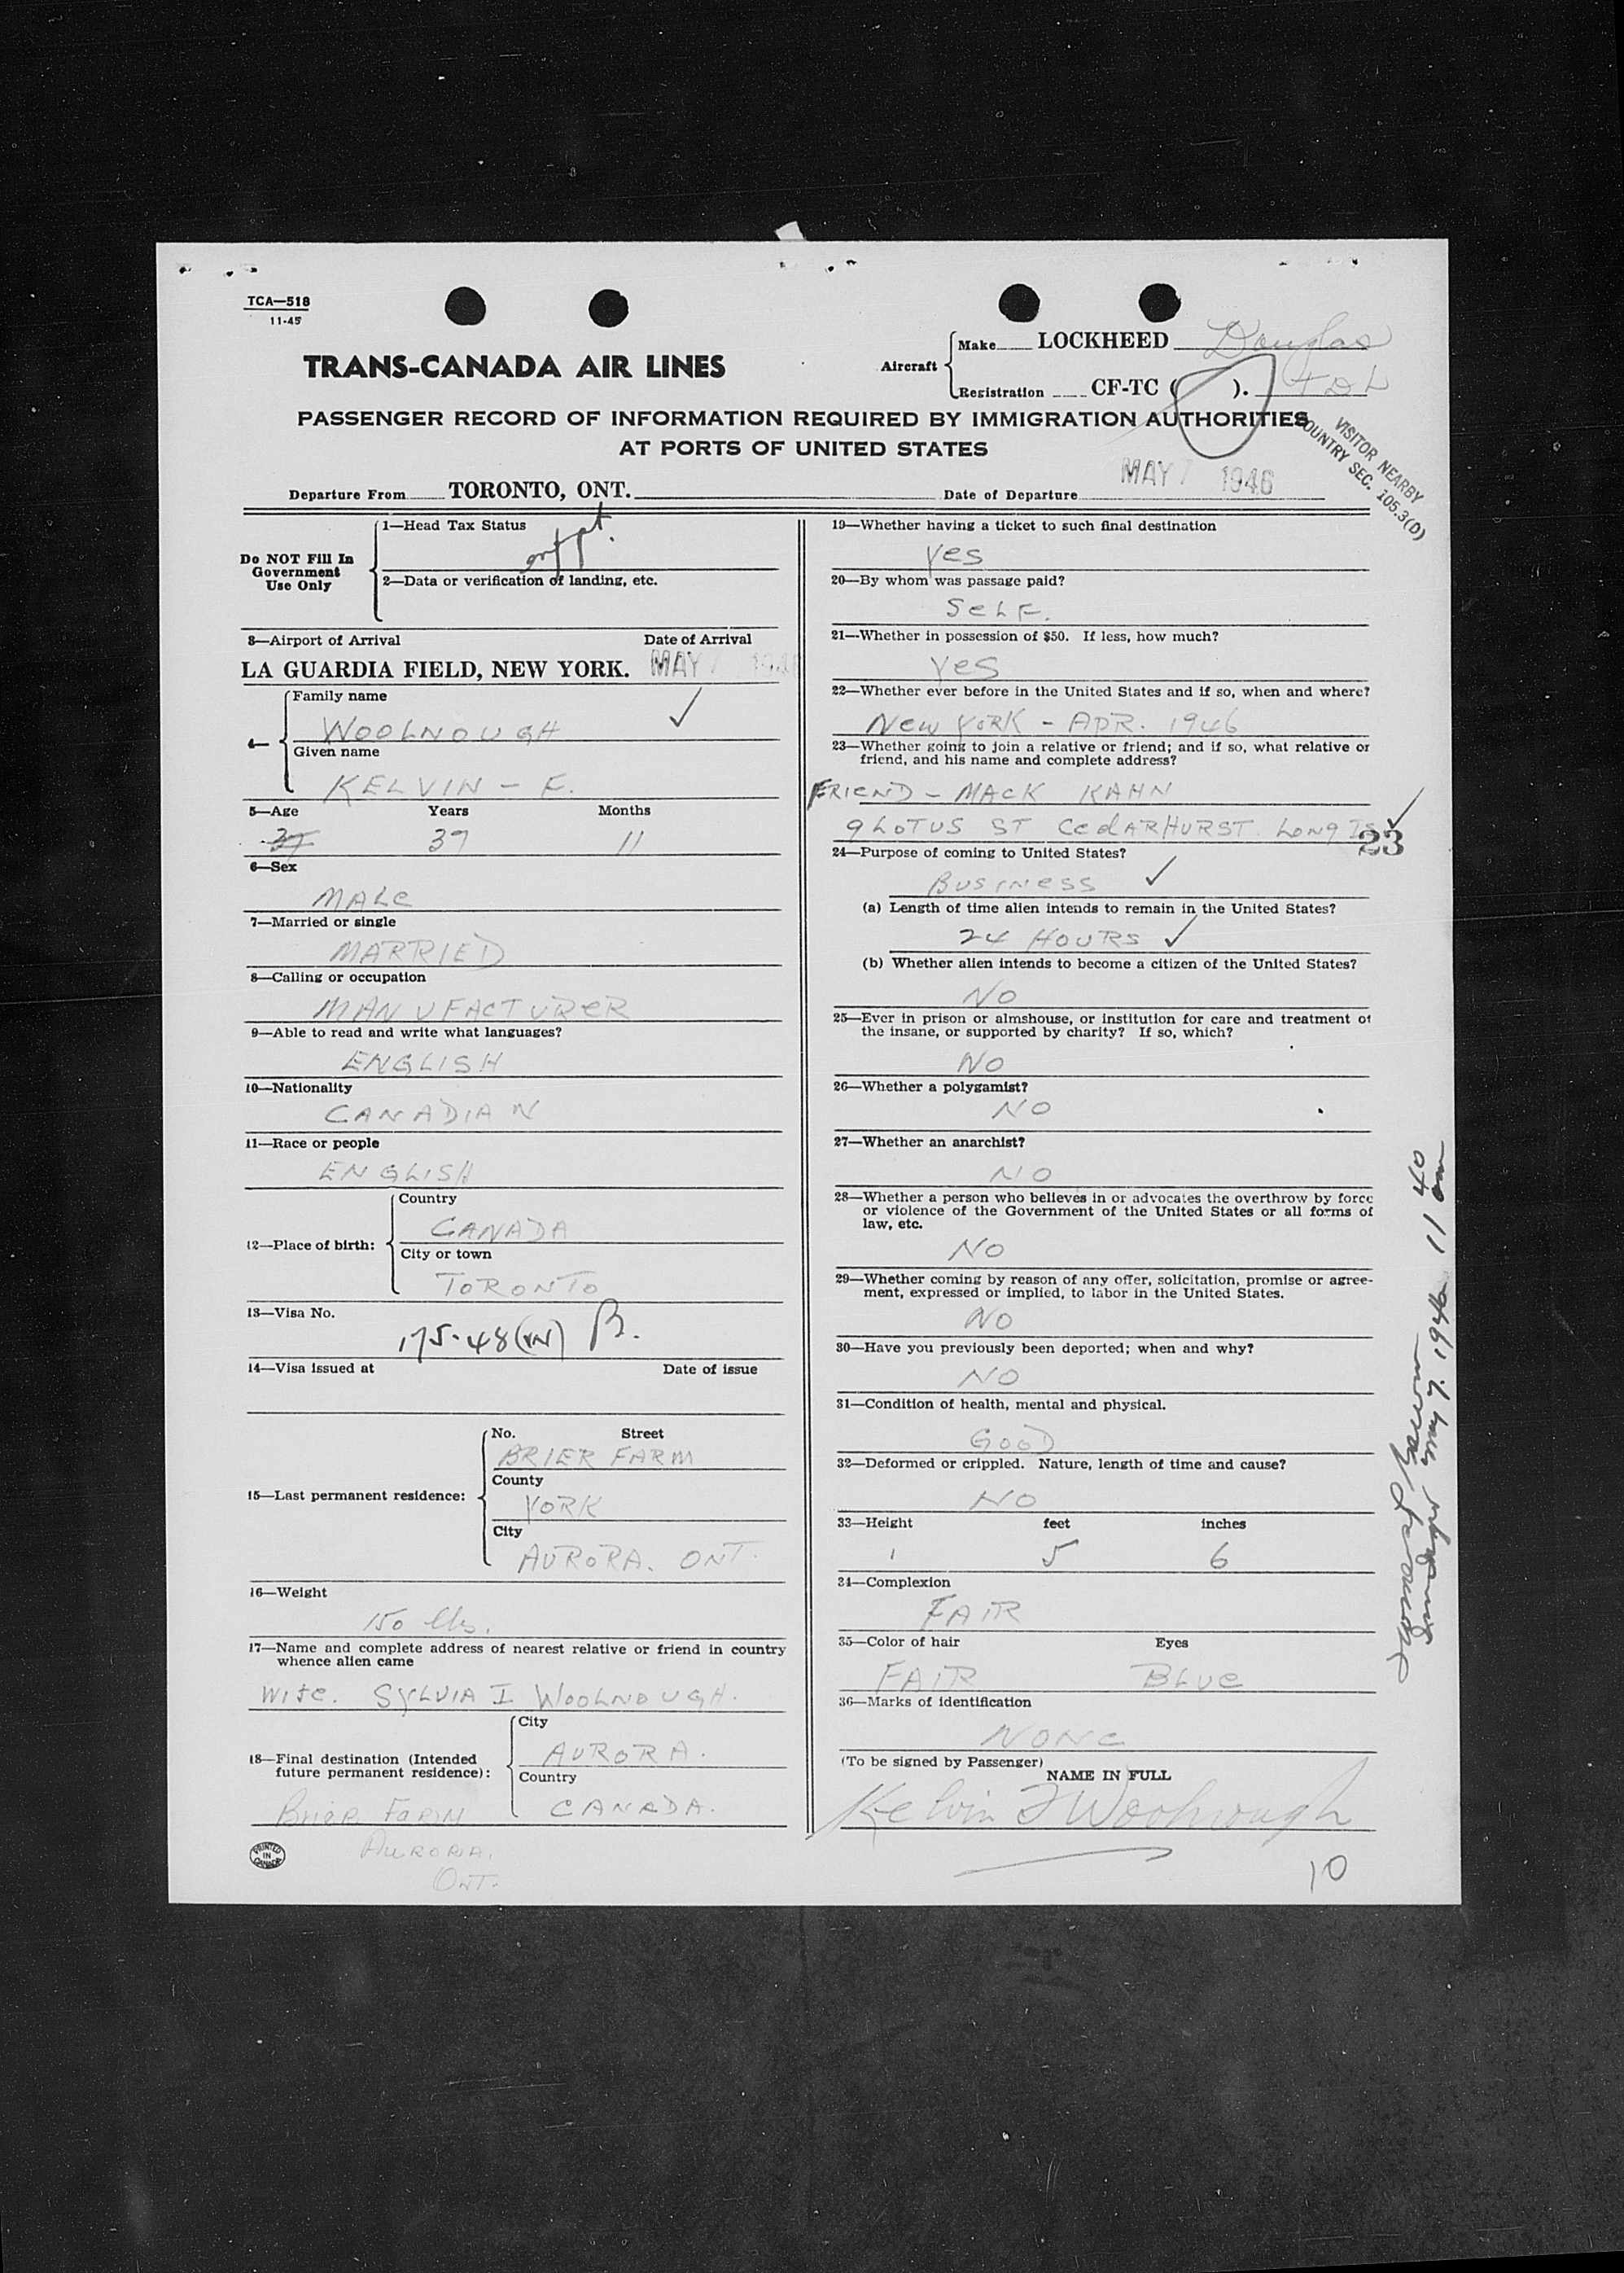 TCA—518
11-45
TRANS-CANADA AIR LINES
Aircraft
Make LOCKHEED Douglas
Registration CF-TC ( ). TDL
PASSENGER RECORD OF INFORMATION REQUIRED BY IMMIGRATION AUTHORITIES
AT PORTS OF UNITED STATES
VISITOR NEARBY
COUNTRY SEC. 105.3(D)
Departure From TORONTO, ONT.
Date of Departure MAY 7 1946
Do NOT Fill In
Government
Use Only
1—Head Tax Status
2—Data or verification of landing, etc.
3—Airport of Arrival Date of Arrival
LA GUARDIA FIELD, NEW YORK. MAY 7 1946
4—
Family name
WOOLNOUGH
Given name
KELVIN - F.
5—Age Years Months
37 37 11
6—Sex
MALE
7—Married or single
MARRIED
8—Calling or occupation
MANUFACTURER
9—Able to read and write what languages?
ENGLISH
10—Nationality
CANADIAN
11—Race or people
ENGLISH
12—Place of birth:
Country
CANADA
City or town
TORONTO
13—Visa No.
175-48 B.
14—Visa issued at Date of issue
15—Last permanent residence:
No. Street
BRIER FARM
County
YORK
City
AURORA. ONT.
16—Weight
150 lbs.
17—Name and complete address of nearest relative or friend in country
whence alien came
Wife. SYLVIA I WOOLNOUGH.
18—Final destination (Intended
future permanent residence):
City
AURORA.
Country
CANADA.
Brier Farm
AURORA.
ONT.
PRINTED
IN
CANADA
19—Whether having a ticket to such final destination
Yes
20—By whom was passage paid?
SELF.
21—Whether in possession of $50. If less, how much?
Yes
22—Whether ever before in the United States and if so, when and where?
New YORK - APR. 1946
23—Whether going to join a relative or friend; and if so, what relative or
friend, and his name and complete address?
FRIEND - MACK KAHN
9 LOTUS ST CedARHURST LONG IS
23
24—Purpose of coming to United States?
BUSINESS
(a) Length of time alien intends to remain in the United States?
24 HOURS
(b) Whether alien intends to become a citizen of the United States?
NO
25—Ever in prison or almshouse, or institution for care and treatment of
the insane, or supported by charity? If so, which?
NO
26—Whether a polygamist?
NO
27—Whether an anarchist?
NO
28—Whether a person who believes in or advocates the overthrow by force
or violence of the Government of the United States or all forms of
law, etc.
NO
29—Whether coming by reason of any offer, solicitation, promise or agree-
ment, expressed or implied, to labor in the United States.
NO
30—Have you previously been deported; when and why?
NO
31—Condition of health, mental and physical.
GOOD
32—Deformed or crippled. Nature, length of time and cause?
NO
33—Height feet inches
5 6
34—Complexion
FAIR
35—Color of hair Eyes
FAIR BLUE
36—Marks of identification
NONE
(To be signed by Passenger)
NAME IN FULL
Kelvin F Woolnough
10
May 7. 1946 11 40 am